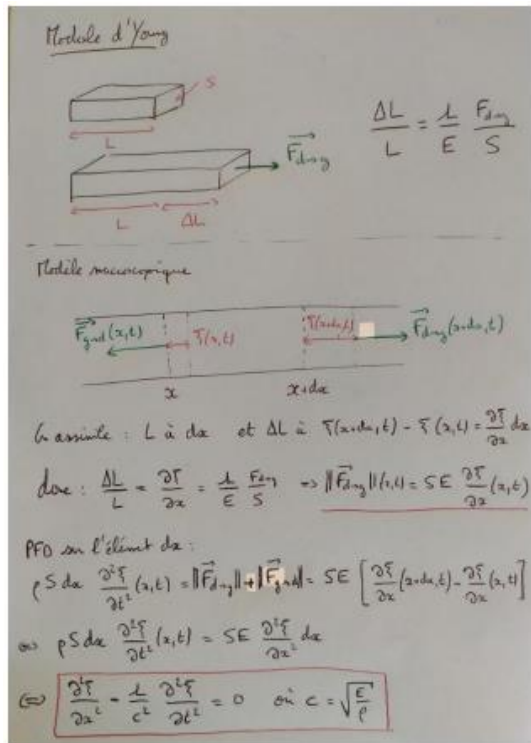 Module d'Young
S
L
F⃗_drg
ΔL/L = 1/E F_drg/S
L ΔL
Modèle macroscopique
F⃗_gad(x,t) ξ(x,t) ξ(x+dx,t) F⃗_drg(x+dx,t)
x x+dx
On assimile : L à dx et ΔL à ξ(x+dx,t) - ξ(x,t) = ∂ξ/∂x dx
donc : ΔL/L = ∂ξ/∂x = 1/E F_drg/S ⇒ ||F⃗_drg||(x,t) = SE ∂ξ/∂x (x,t)
PFD sur l'élémt dx :
ρS dx ∂²ξ/∂t² (x,t) = ||F⃗_drg|| + ||F⃗_gad|| = SE [∂ξ/∂x (x+dx,t) - ∂ξ/∂x (x,t)]
⇔ ρS dx ∂²ξ/∂t² (x,t) = SE ∂²ξ/∂x² dx
⇔ ∂²ξ/∂x² - 1/c² ∂²ξ/∂t² = 0 où c = √(E/ρ)